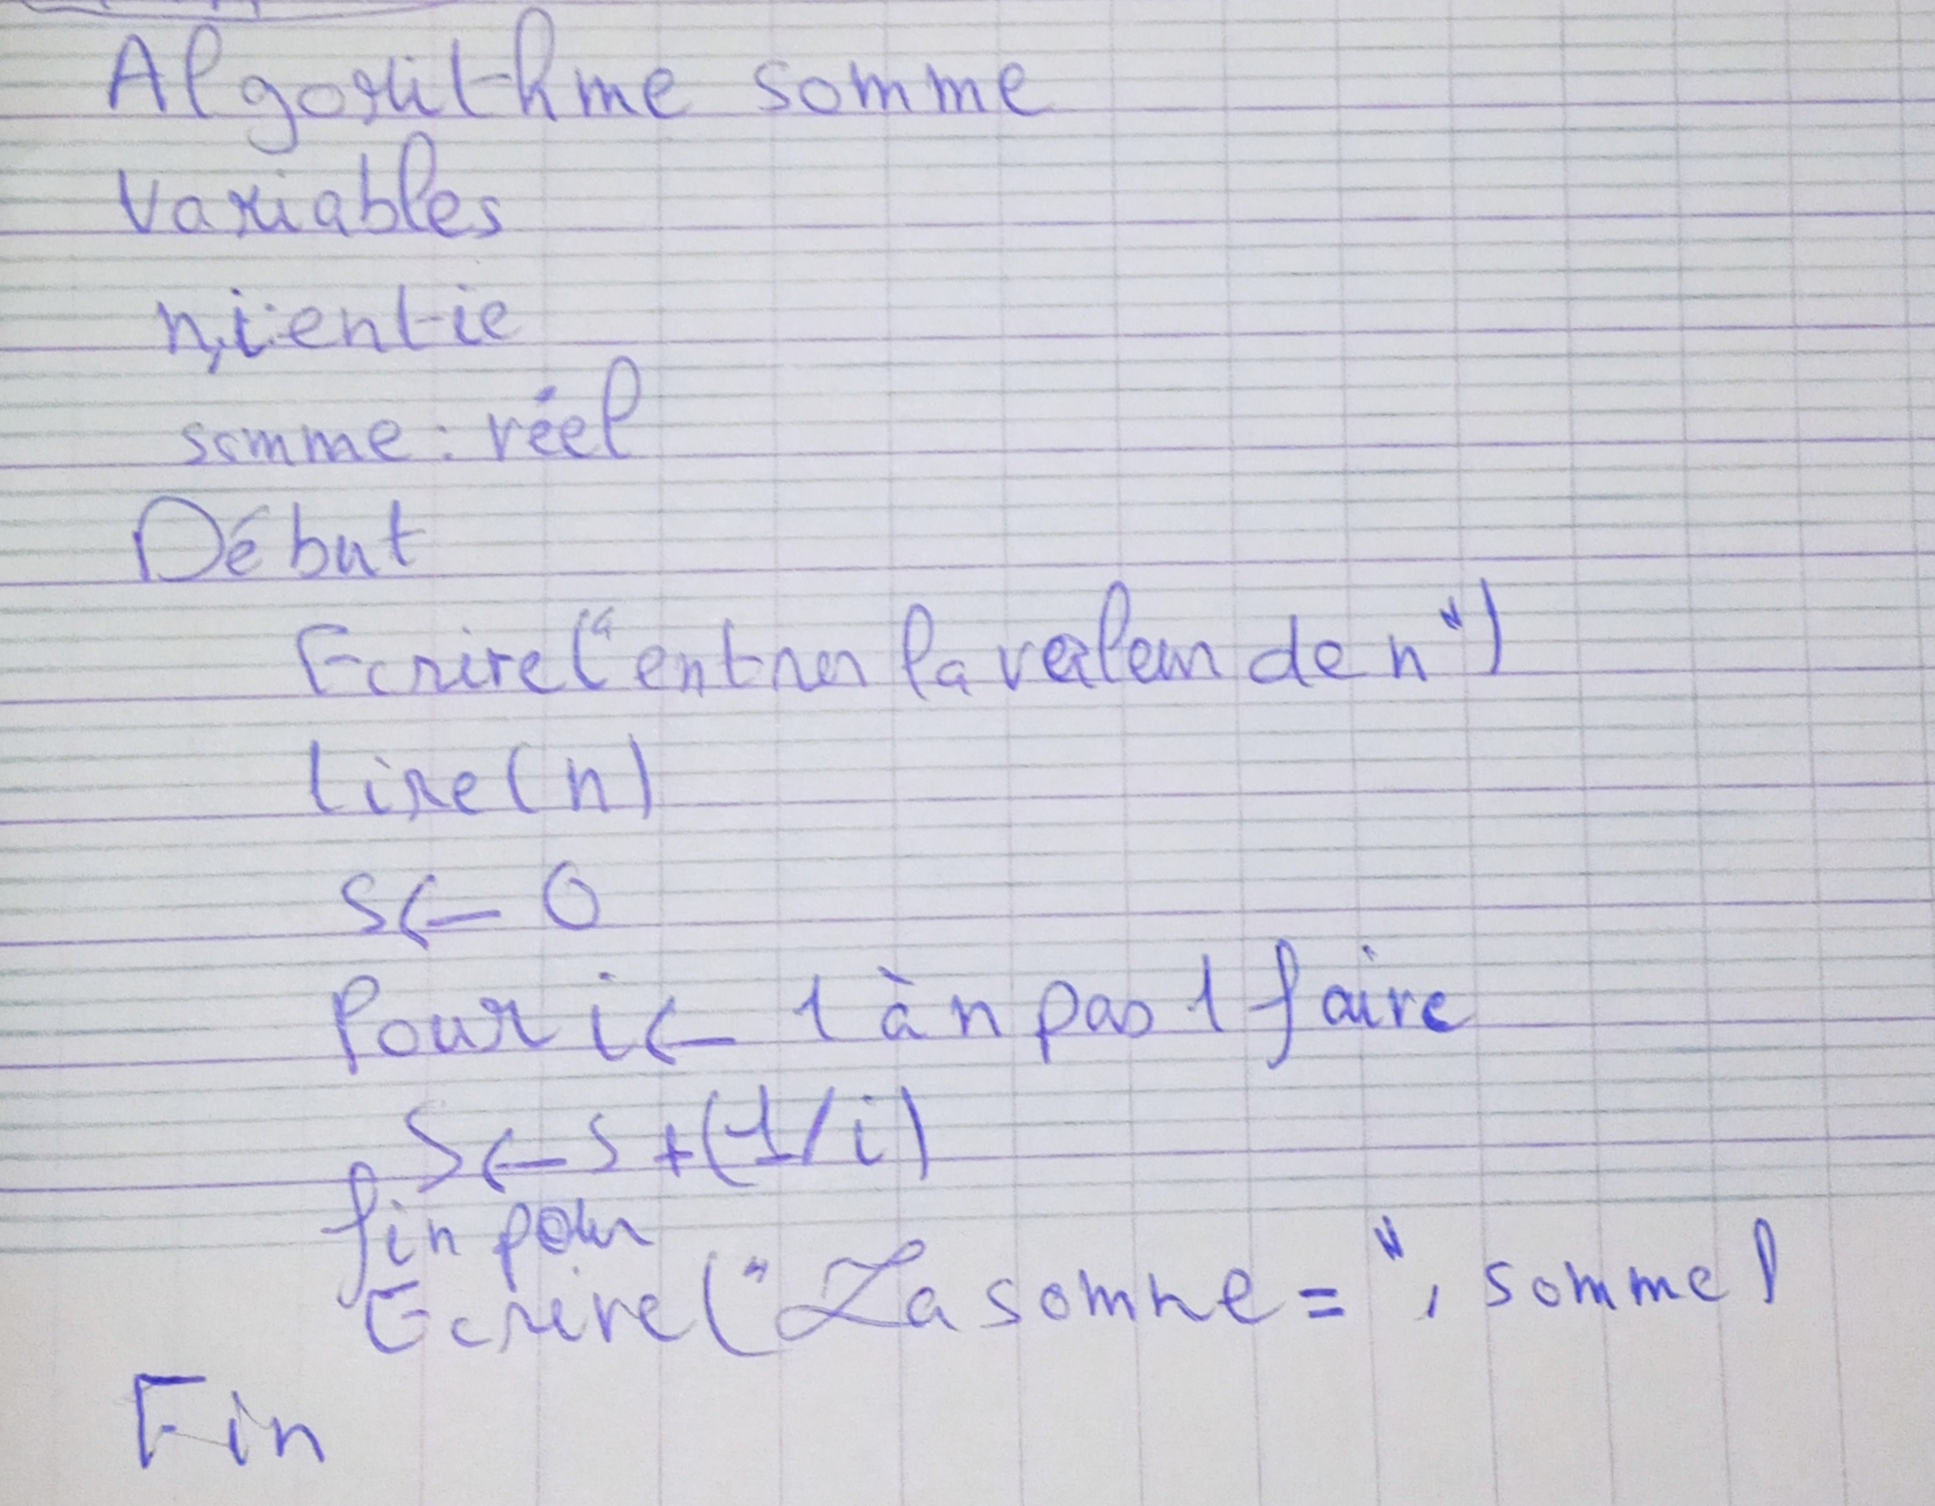 Algorithme somme
Variables
n,i:entie
somme: réel
Début
Ecrire("entrer la valeur de n")
lire(n)
s← 0
Pour i← 1 à n pas 1 faire
S←s+(1/i)
fin pour
Ecrire("La somme=", somme)
Fin